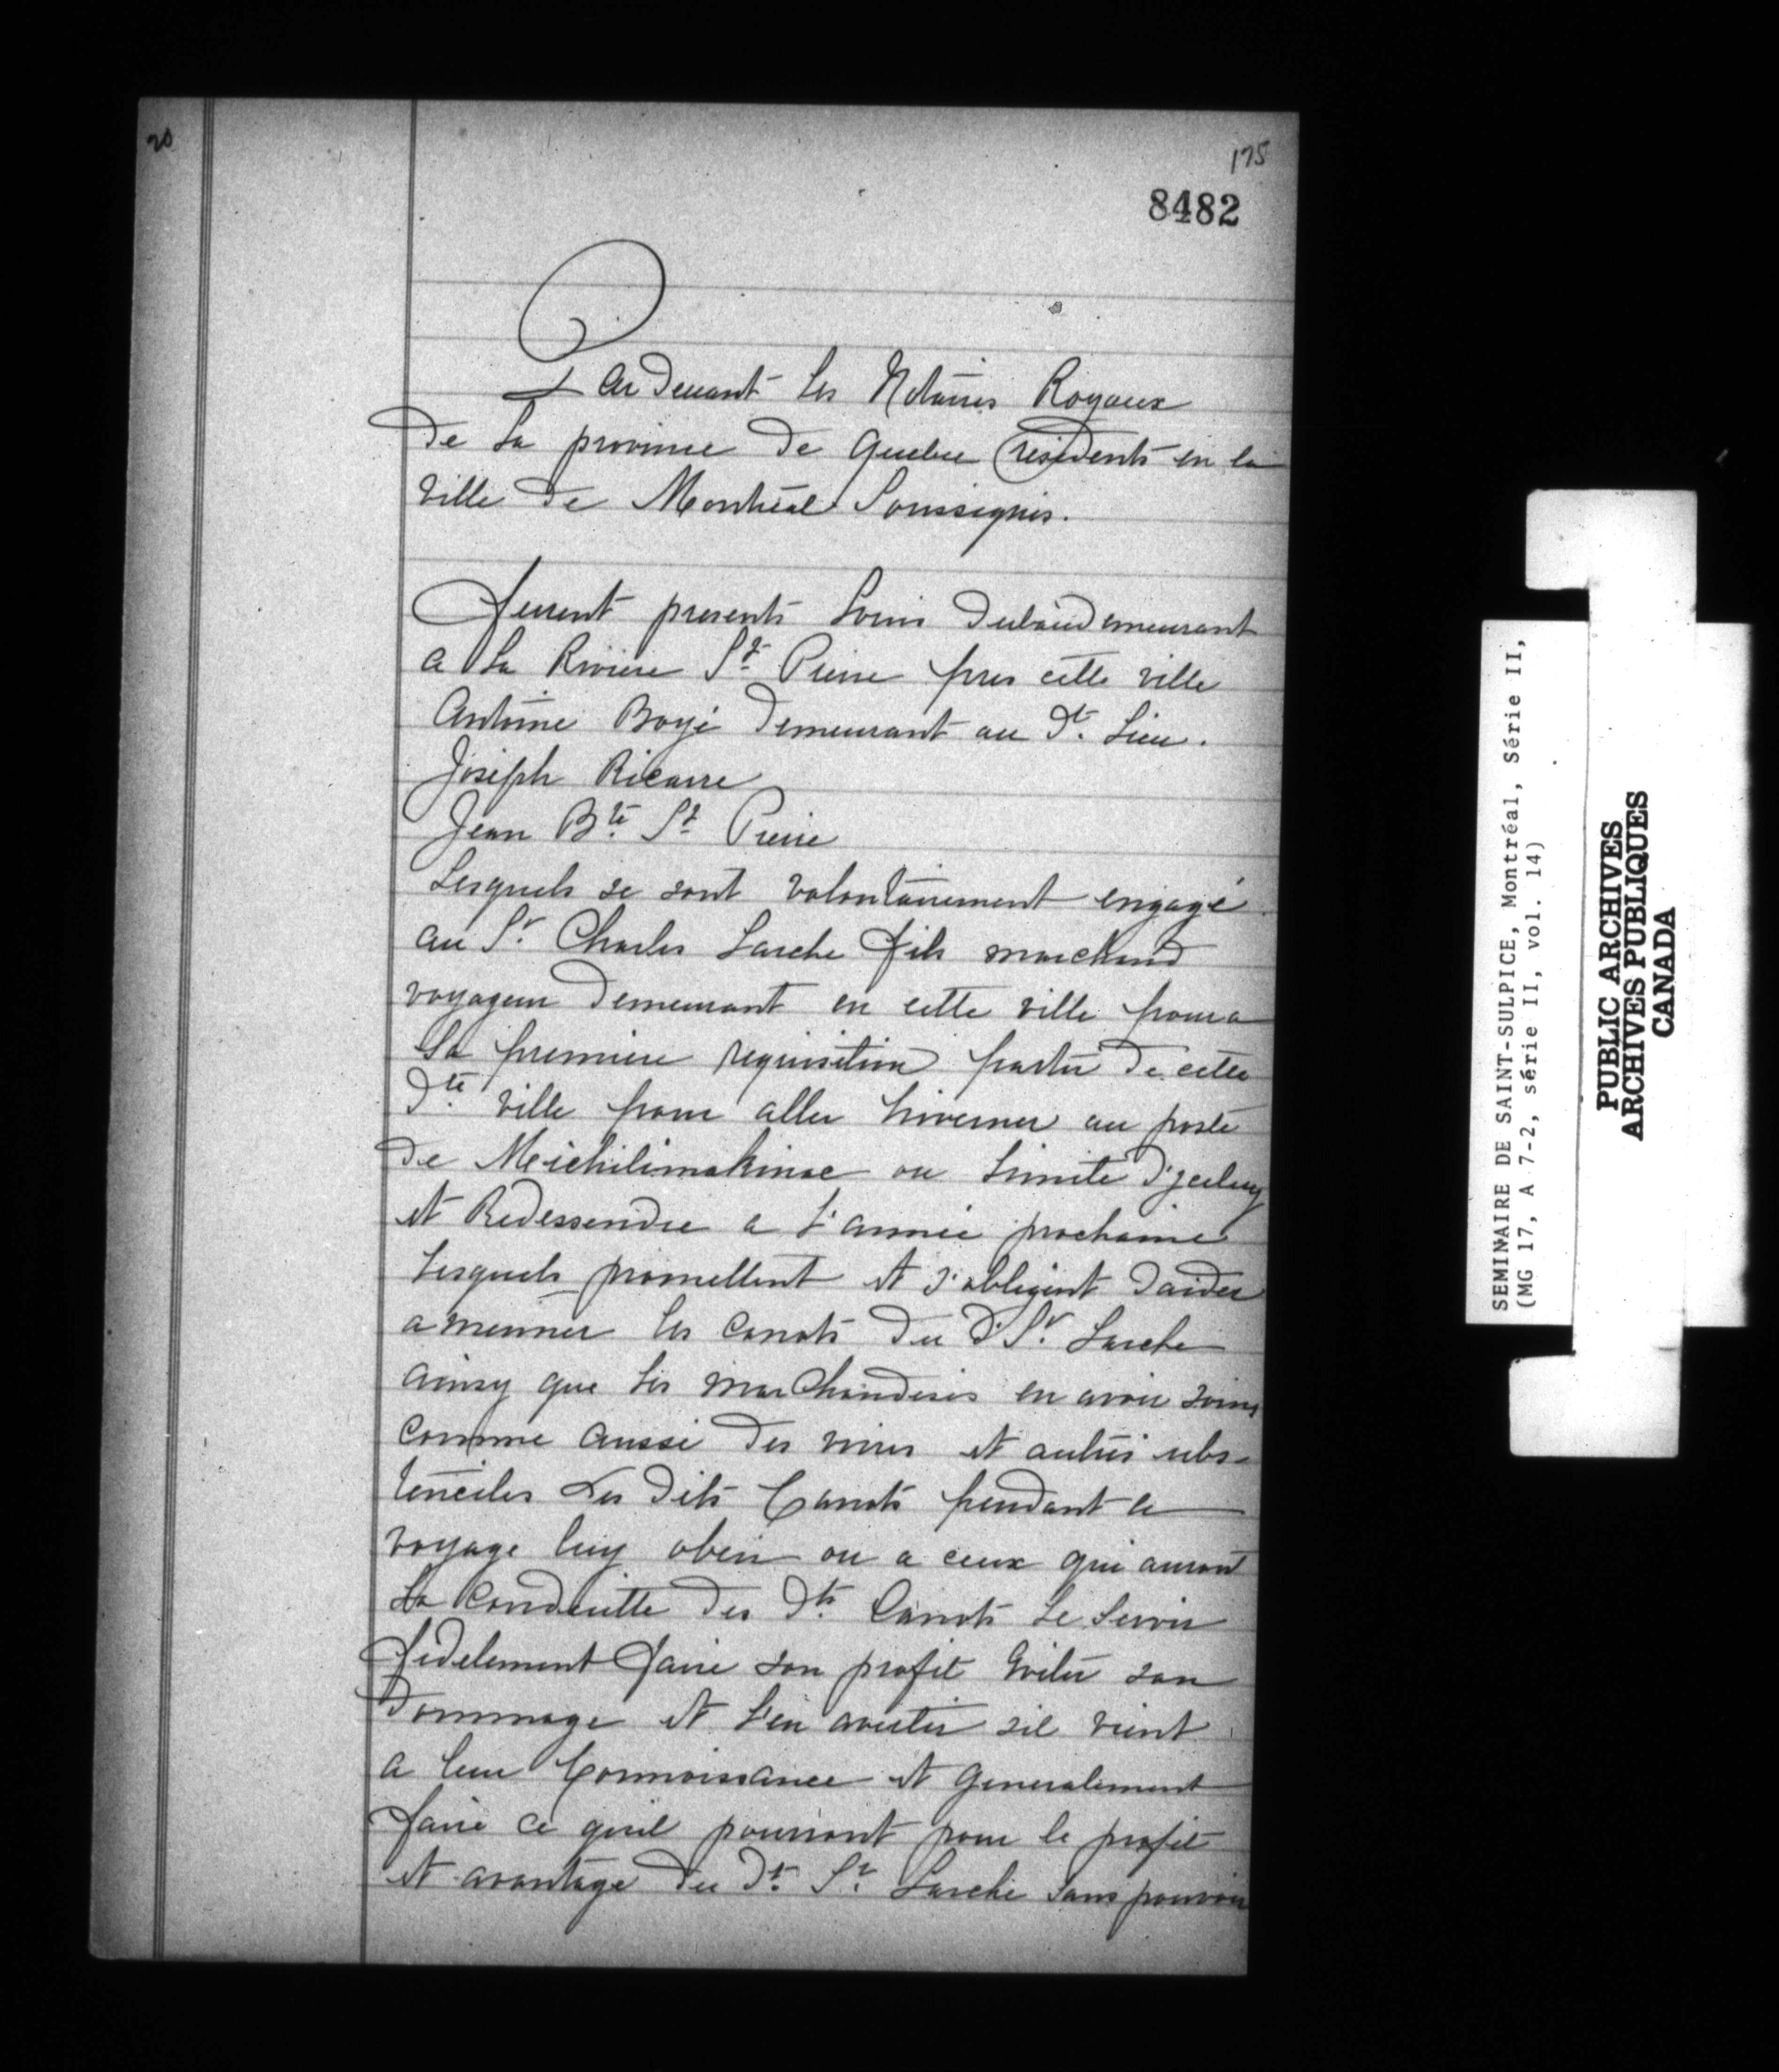 20
175
8482
Pardevant Les Notaires Royaux
de La province de Quebec residents en la
ville de Montreal Soussignés.
furent presents Louis dubaudemeurant
a La Riviere St Pierre pres cette ville
Antoine Boyé demeurant au dt. Lieu.
Joseph Ricarre
Jean Bte. St Pierre
Lesquels se sont volontairement engagé
au Sr. Charles Larche fils marchand
voyageur demeurant en cette ville pour a
La premiere requisition partir de cette
dte. ville pour aller hiverner au poste
de Meichilimakinac ou Limite
et Redessendre a L'année prochaine
Lesquels promettent et s'obligent d'aider
a menner les canots du d. Sr. Larche
ainsy que Les marChandises en avoir soins
comme aussi des vivres et autres ubs-
tenciles Les dits Canots pendant le
voyage luy obeir ou a ceux qui auront
La Conduitte des dts. Canots Le Servir
fidelement faire son profit Eviter son
Dommage et L'en avertir sil vient
a leur Connoissance et generalement
faire ce quil pourront pour le profit
et avantage du dt. Sr. Larche sans pouvoir
SEMINAIRE DE SAINT-SULPICE, Montréal, Série II,
(MG 17, A 7-2, série II, vol. 14)
PUBLIC ARCHIVES
ARCHIVES PUBLIQUES
CANADA